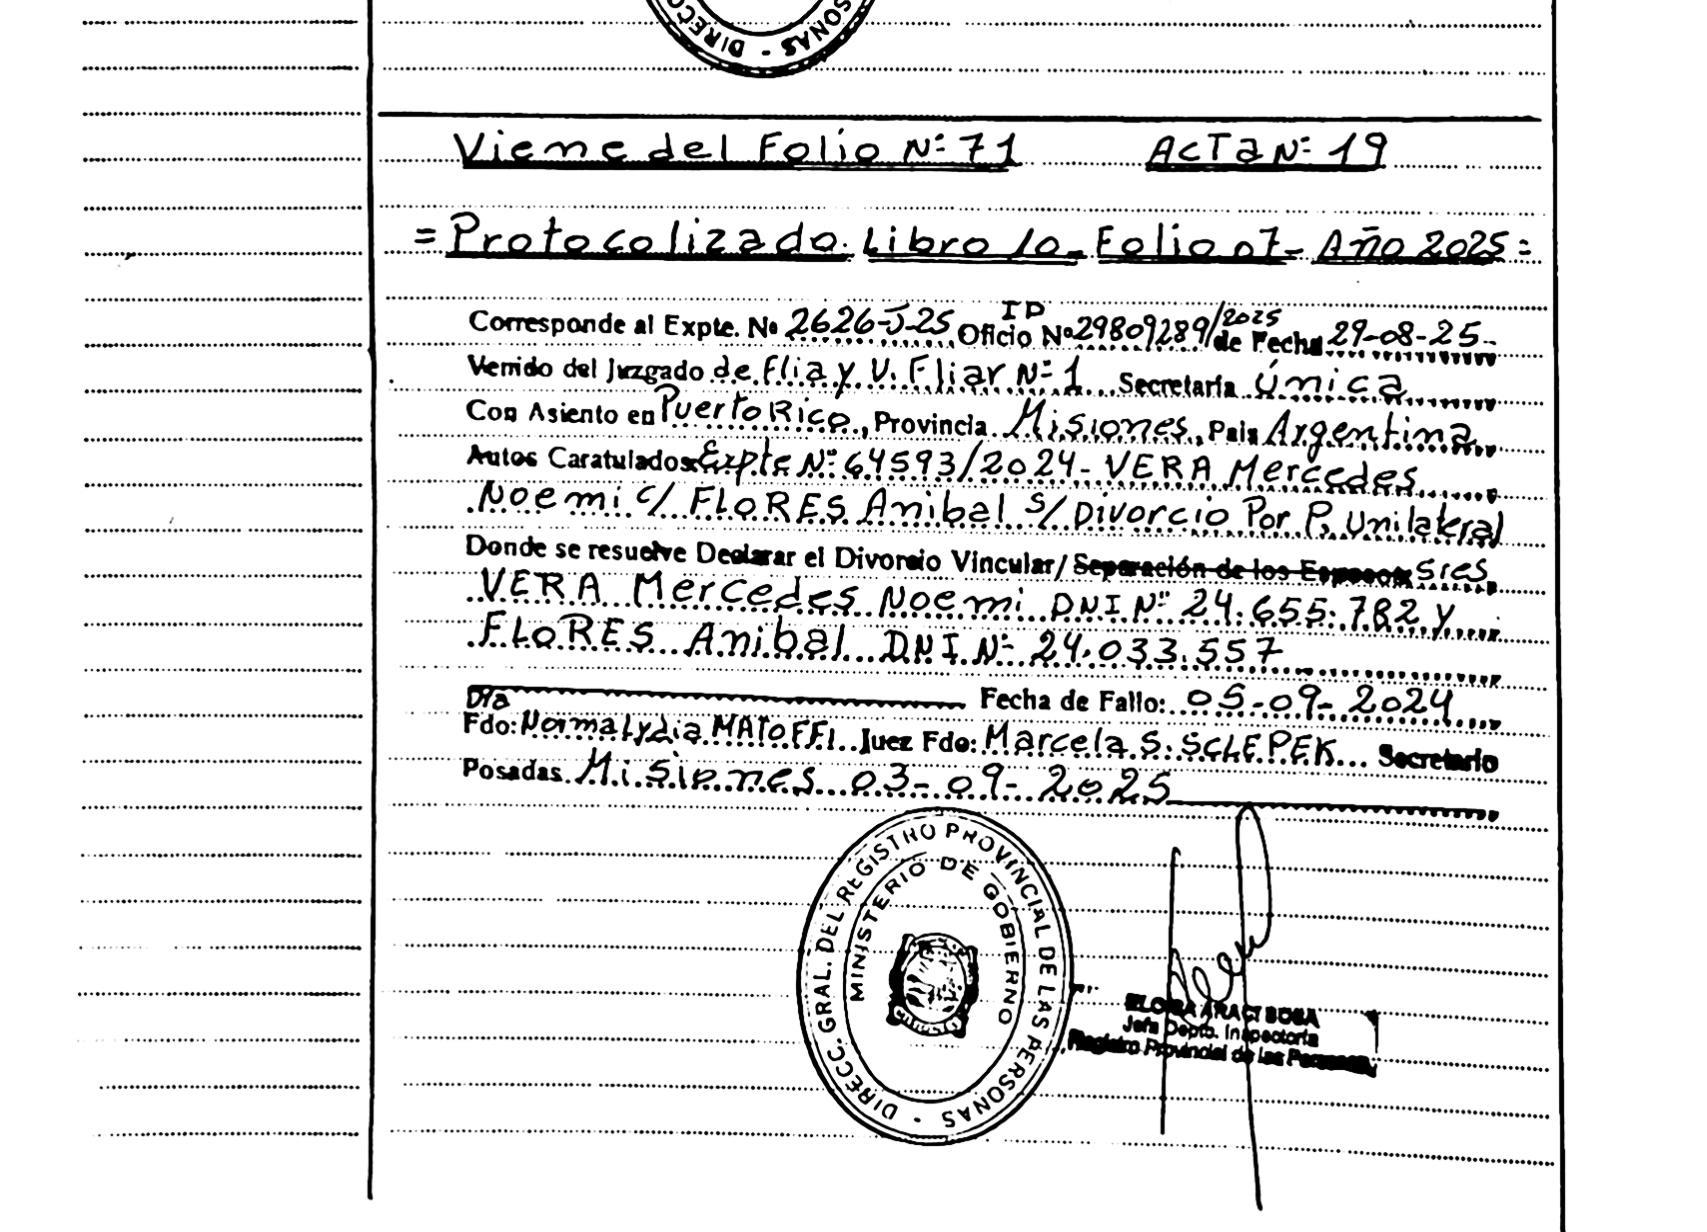 DIRECC SONAS -
Viene del Folio Nº 71 Acta Nº 19
= Protocolizado. Libro 10 - Folio 07 - Año 2025 =
Corresponde al Expte. Nº 2626-J-25 Oficio Nº IP 29809289/2025 de Fecha 29-08-25.
Venido del Juzgado de Flia y V. Fliar Nº 1 Secretaría Única
Con Asiento en Puerto Rico, Provincia Misiones, País Argentina
Autos Caratulados: Expte Nº 64593/2024 - VERA Mercedes
Noemi c/ FLORES Anibal s/ Divorcio Por P. Unilateral
Donde se resuelve Declarar el Divorcio Vincular/ Separación de los Esposos Sres
VERA Mercedes Noemi DNI Nº 24.655.782 y
FLORES Anibal DNI Nº 24.033.557
Dra Fecha de Fallo: 05-09-2024
Fdo: Norma Lydia MATOFFI Juez Fdo: Marcela S. SCLEPEK Secretario
Posadas Misiones 03-09-2025
DIRECC. GRAL. DEL REGISTRO PROVINCIAL DE LAS PERSONAS -
MINISTERIO DE GOBIERNO
ELOISA ARACI SOSA
Jefa Depto. Inspectoría
Registro Provincial de las Personas